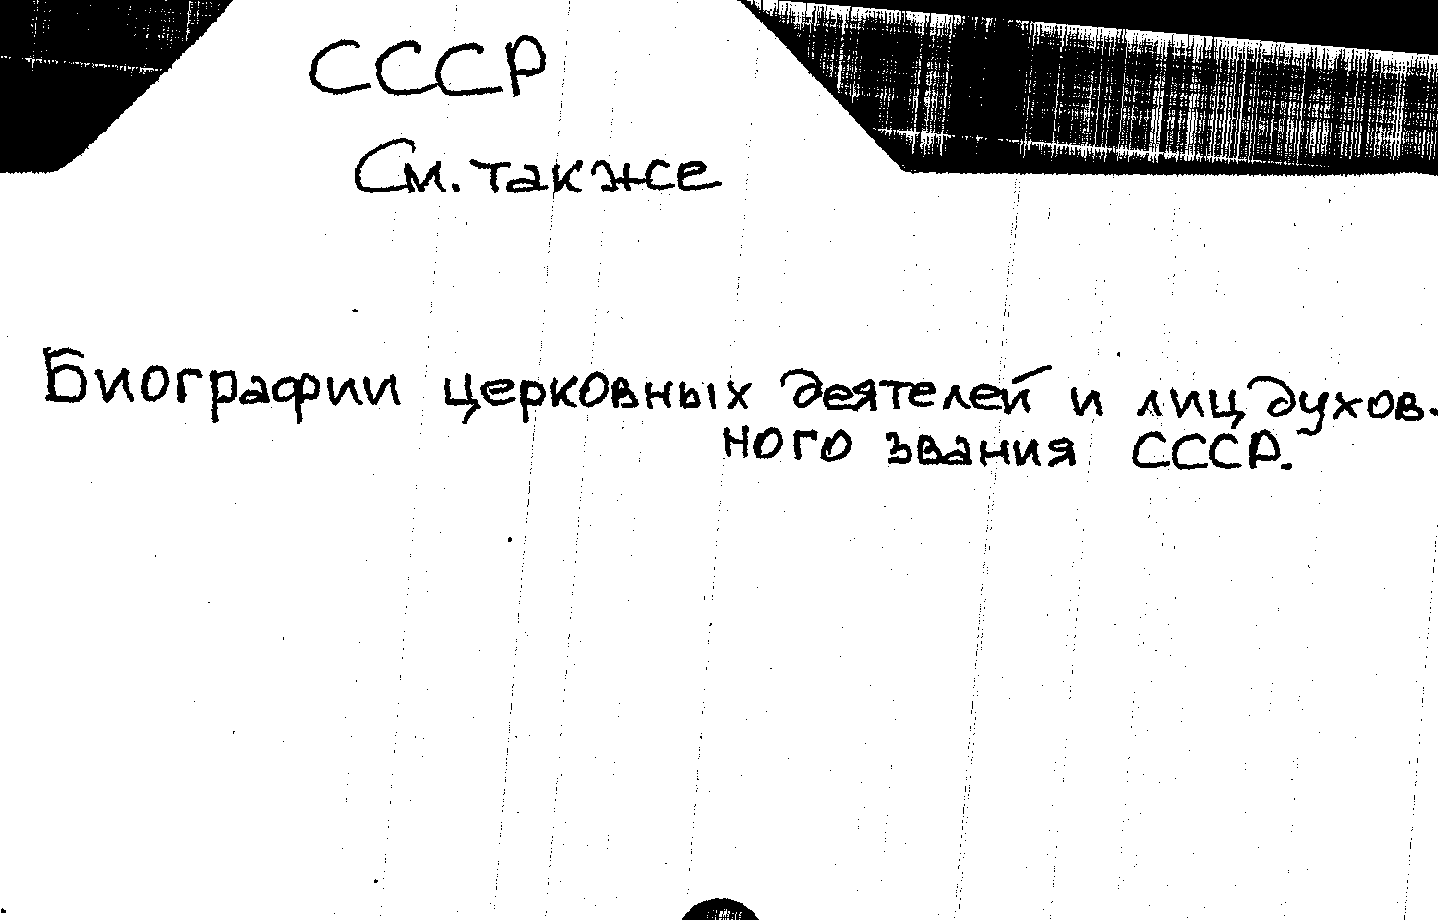 СССР
См. также
Биографии церковных деятелей и лиц духов.
ного звания СССР.